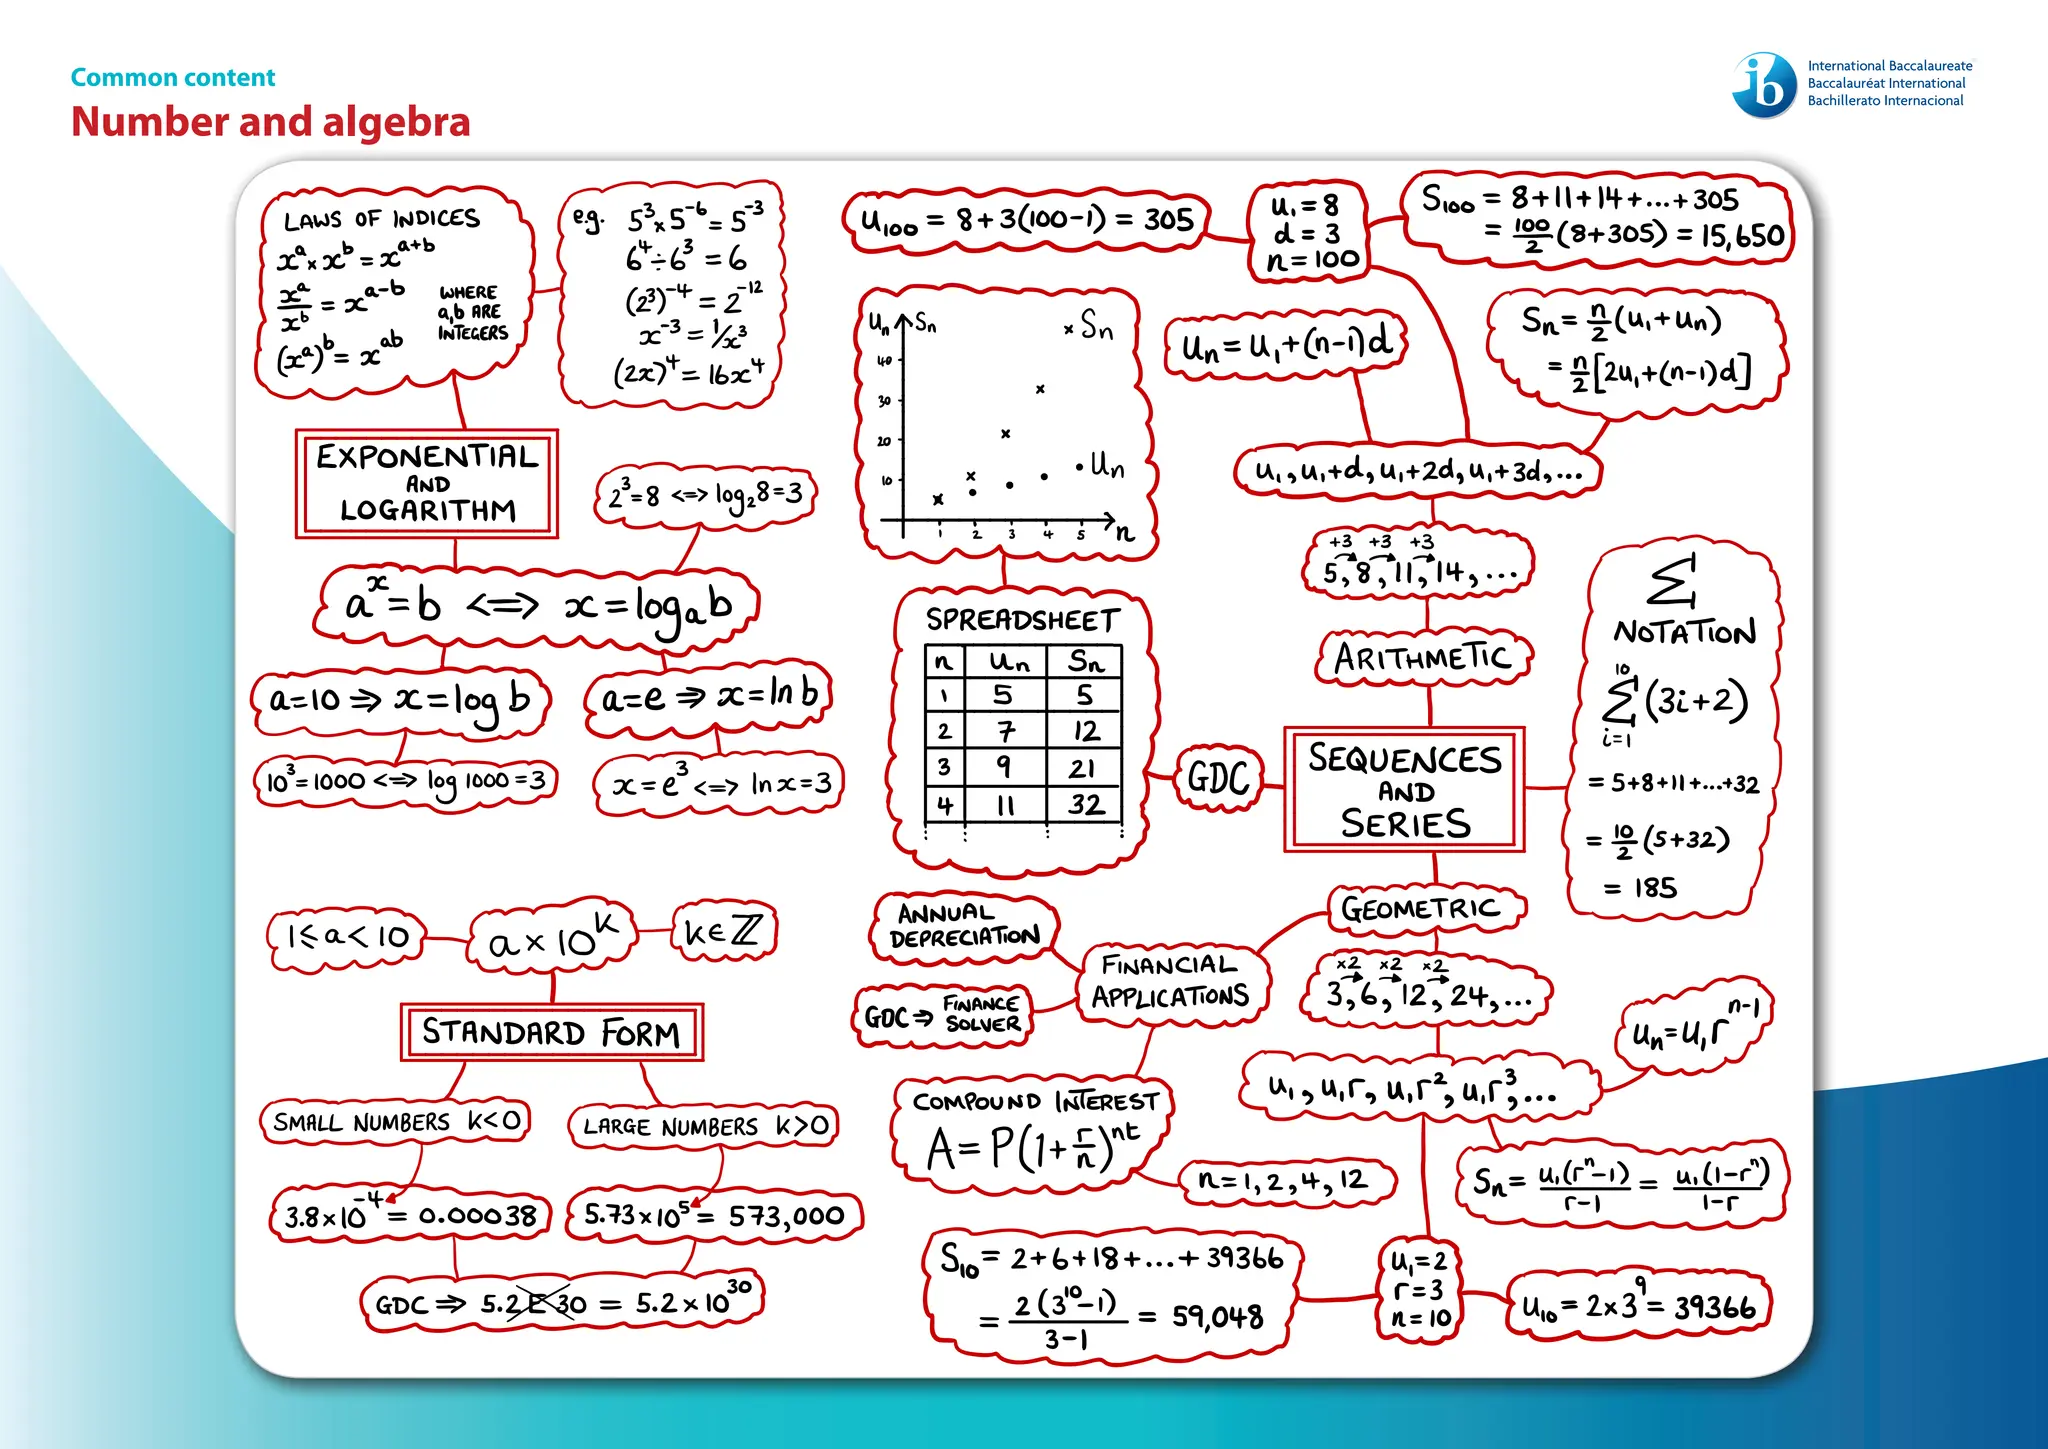 Common content
Number and algebra
International Baccalaureate
Baccalauréat International
Bachillerato Internacional
LAWS OF INDICES
xᵃ × xᵇ = xᵃ⁺ᵇ
xᵃ/xᵇ = xᵃ⁻ᵇ
(xᵃ)ᵇ = xᵃᵇ
WHERE
a,b ARE
INTEGERS
e.g. 5³ × 5⁻⁶ = 5⁻³
6⁴ ÷ 6³ = 6
(2³)⁻⁴ = 2⁻¹²
x⁻³ = 1/x³
(2x)⁴ = 16x⁴
EXPONENTIAL
AND
LOGARITHM
2³=8 <=> log₂8=3
aˣ=b <=> x=logₐb
a=10 => x=log b
a=e => x=ln b
10³=1000 <=> log 1000=3
x=e³ <=> ln x=3
1≤a<10
a×10ᵏ
k∈ℤ
STANDARD FORM
SMALL NUMBERS k<0
LARGE NUMBERS k>0
3.8×10⁻⁴ = 0.00038
5.73×10⁵ = 573,000
GDC => 5.2E30 = 5.2×10³⁰
u₁₀₀ = 8+3(100-1) = 305
u₁=8
d=3
n=100
S₁₀₀ = 8+11+14+...+305
= 100/2 (8+305) = 15,650
uₙ Sₙ
40
30
20
10
1 2 3 4 5 n
× Sₙ
• uₙ
uₙ = u₁+(n-1)d
Sₙ = n/2 (u₁+uₙ)
= n/2 [2u₁+(n-1)d]
u₁, u₁+d, u₁+2d, u₁+3d, ...
+3 +3 +3
5, 8, 11, 14, ...
ARITHMETIC
SPREADSHEET
n uₙ Sₙ
1 5 5
2 7 12
3 9 21
4 11 32
GDC
SEQUENCES
AND
SERIES
Σ
NOTATION
10
Σ (3i+2)
i=1
= 5+8+11+...+32
= 10/2 (5+32)
= 185
GEOMETRIC
×2 ×2 ×2
3, 6, 12, 24, ...
ANNUAL
DEPRECIATION
FINANCIAL
APPLICATIONS
GDC => FINANCE
SOLVER
COMPOUND INTEREST
A=P(1+r/n)ⁿᵗ
n=1,2,4,12
u₁, u₁r, u₁r², u₁r³, ...
uₙ=u₁rⁿ⁻¹
Sₙ = u₁(rⁿ-1)/r-1 = u₁(1-rⁿ)/1-r
S₁₀ = 2+6+18+...+39366
= 2(3¹⁰-1)/3-1 = 59,048
u₁=2
r=3
n=10
u₁₀ = 2×3⁹ = 39366